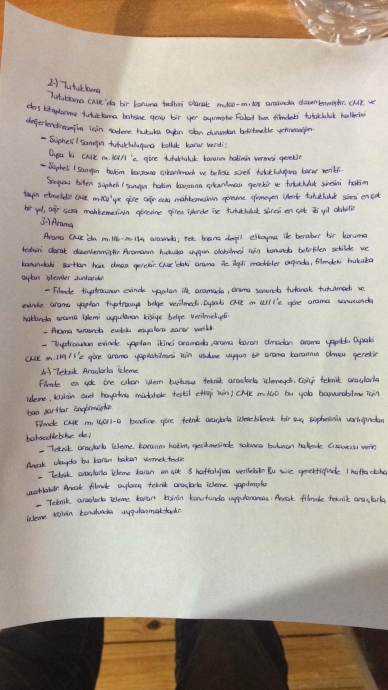 2-) Tutuklama
Tutuklama CMK'da bir koruma tedbiri olarak m.100-m.108 arasında düzenlenmiştir. CMK ve
ders kitaplarımız tutuklama bahsine geniş bir yer ayırmıştır. Fakat ben filmdeki tutukluluk hallerini
değerlendireceğim için sadece hukuka aykırı olan durumdan belirtmekle yetineceğim.
- Şüpheli / Sanığın tutukluluğuna kolluk karar verdi;
Oysa ki CMK m.101/1'e göre tutukluluk kararını hakimin vermesi gerekir.
- Şüpheli / Sanığın hakim karşısına çıkarılmadı ve belirsiz süreli tutukluluğuna karar verildi.
Sorgusu biten şüpheli / sanığın hakim karşısına çıkarılması gerekir ve tutukluluk süresini hakim
tayin etmelidir. CMK m.102'ye göre ağır ceza mahkemesinin görevine girmeyen işlerde tutukluluk süresi en çok
bir yıl, ağır ceza mahkemesinin görevine giren işlerde ise tutukluluk süresi en çok iki yıl olabilir.
3-) Arama
Arama CMK'da m.116-m.134 arasında, tek başına değil elkoyma ile beraber bir koruma
tedbiri olarak düzenlenmiştir. Aramanın hukuka uygun olabilmesi için kanunda belirtilen şekilde ve
kanundaki şartları haiz olması gerekir. CMK'daki arama ile ilgili maddeler ışığında, filmdeki hukuka
aykırı işlemler şunlardır:
- Filmde tiyatrocunun evinde yapılan ilk aramada, arama sonunda tutanak tutulmadı ve
evinde arama yapılan tiyatrocuya belge verilmedi. Oysaki CMK m.121/1'e göre arama sonucunda
hakkında arama işlemi uygulanan kişiye belge verilmeliydi.
- Arama sırasında evdeki eşyalara zarar verildi.
- Tiyatrocunun evinde yapılan ikinci aramada, arama kararı olmadan arama yapıldı. Oysaki
CMK m.119/1'e göre arama yapılabilmesi için usulüne uygun bir arama kararının olması gerekir.
4-) Teknik Araçlarla İzleme
Filmde en çok öne çıkan işlem kuşkusuz teknik araçlarla izlemeydi. Kişiyi teknik araçlarla
izleme, kişinin özel hayatına müdahale teşkil ettiği için; CMK m.140 bu yola başvurabilme için
bazı şartlar öngörmüştür.
Filmde CMK m.140/1-a bendine göre teknik araçlarla izlenebilecek bir suç şüphesinin varlığından
bahsedilebilse de;
- Teknik araçlarla izleme kararını hakim, gecikmesinde sakınca bulunan hallerde C.savcısı verir.
Ancak olayda bu kararı bakan vermektedir.
- Teknik araçlarla izleme kararı en çok 3 haftalığına verilebilir. Bu süre gerektiğinde 1 hafta daha
uzatılabilir. Ancak filmde aylarca teknik araçlarla izleme yapılmıştır.
- Teknik araçlarla izleme kararı kişinin konutunda uygulanamaz. Ancak filmde teknik araçlarla
izleme kişinin konutunda uygulanmaktadır.